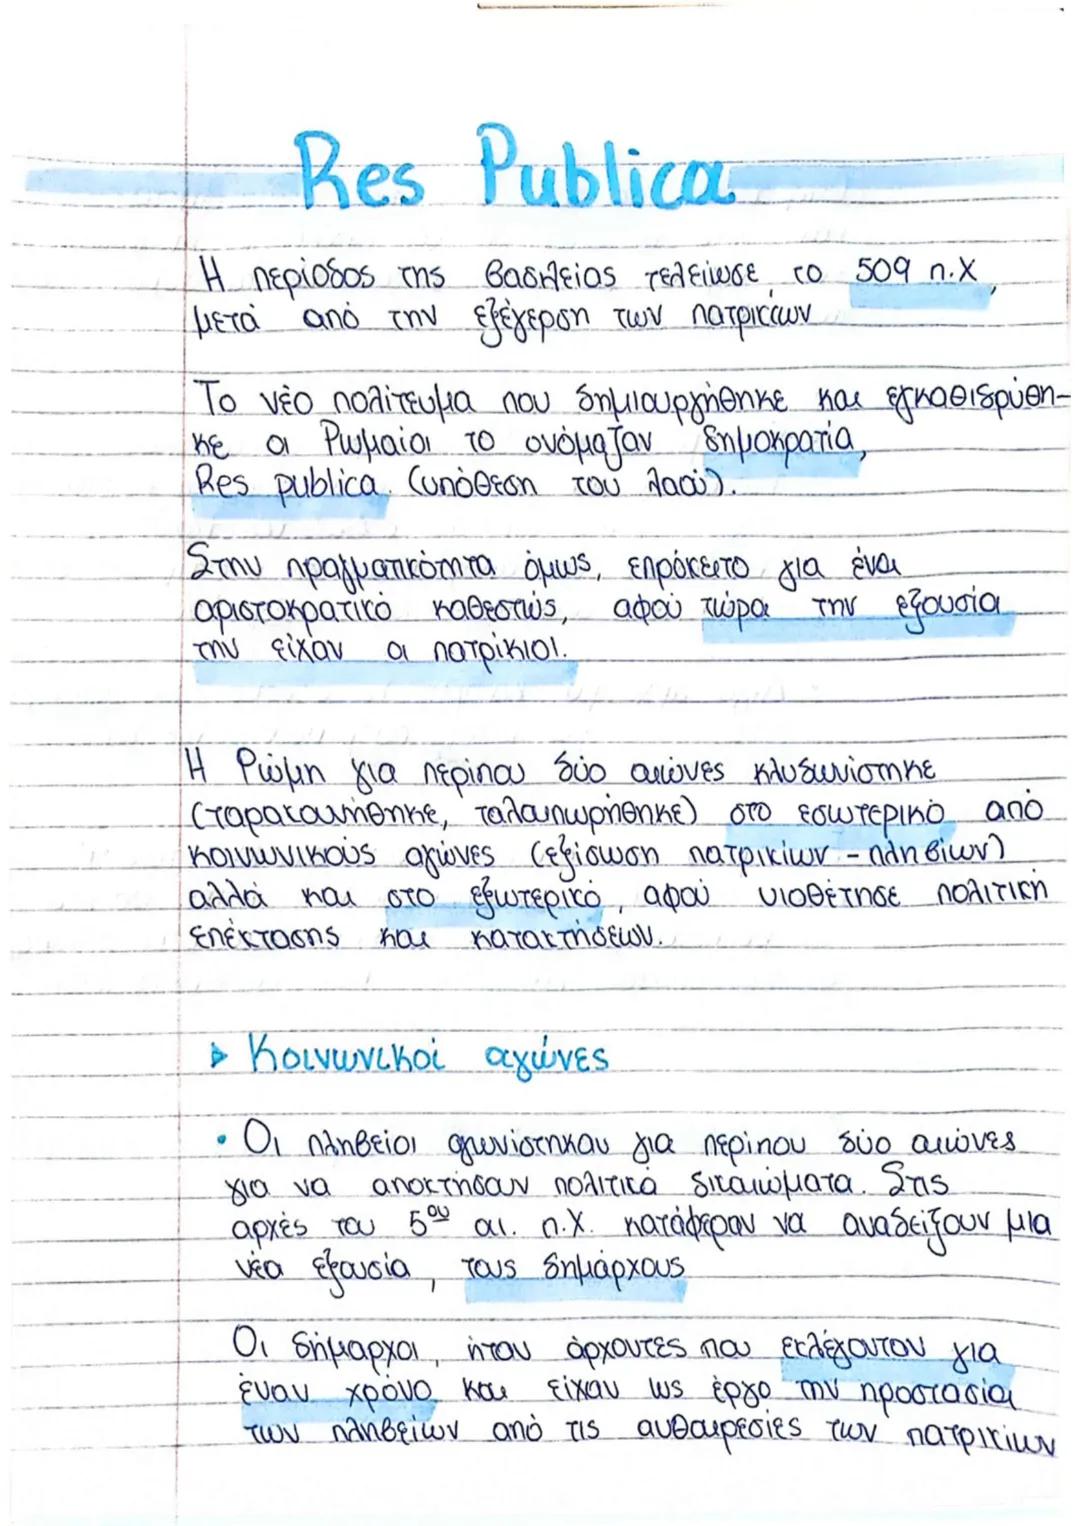 Res Publica
Η περίοδος της βασιλείας τελείωσε το 509 π.Χ,
μετά από την εξέγερση των πατρικίων
Το νέο πολίτευμα που δημιουργήθηκε και εγκαθιδρύθη-
κε οι Ρωμαίοι το ονόμαζαν δημοκρατία,
Res publica (υπόθεση του λαού).
Στην πραγματικότητα όμως, επρόκειτο για ένα
αριστοκρατικό καθεστώς, αφού τώρα την εξουσία
την είχαν οι πατρίκιοι.
Η Ρώμη για περίπου δύο αιώνες κλυδωνίστηκε
(ταρακουνήθηκε, ταλαιπωρήθηκε) στο εσωτερικό από
κοινωνικούς αγώνες (εξίσωση πατρικίων - πληβίων)
αλλά και στο εξωτερικό, αφού υιοθέτησε πολιτική
επέκτασης και κατακτήσεων.
▸ Κοινωνικοί αγώνες
• Οι πληβείοι αγωνίστηκαν για περίπου δύο αιώνες
για να αποκτήσουν πολιτικά δικαιώματα. Στις
αρχές του 5ου αι. π.Χ. κατάφεραν να αναδείξουν μια
νέα εξουσία, τους δημάρχους
Οι δήμαρχοι, ήταν άρχοντες που εκλέγονταν για
έναν χρόνο και είχαν ως έργο την προστασία
των πληβείων από τις αυθαιρεσίες των πατρικίων